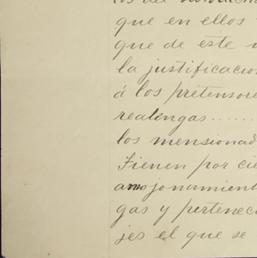 que en ellos
que de este
la justificacion
á los pretensore
realingas......
los mensionad
Fienen por cu
amojonamient
gas y pertenec
jes el que se